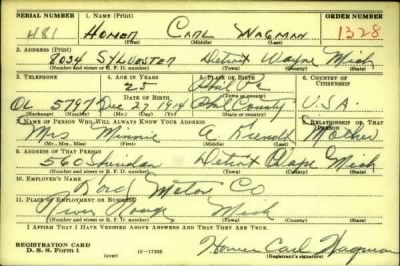 SERIAL NUMBER 1. NAME (Print) ORDER NUMBER
481 HOMER CARL WAGMAN 1328
(First) (Middle) (Last)
2. ADDRESS (Print)
8034 SYLVESTER Detroit Wayne Mich
(Number and street or R. F. D. number) (Town) (County) (State)
3. TELEPHONE 4. AGE IN YEARS 5. PLACE OF BIRTH 6. COUNTRY OF CITIZENSHIP
25 Phil Pa
DATE OF BIRTH (Town)
OL 5797 Dec 27 1914 Phil County U.S.A.
(Exchange) (Number) (Mo.) (Day) (Yr.) (State or country)
7. NAME OF PERSON WHO WILL ALWAYS KNOW YOUR ADDRESS RELATIONSHIP OF THAT PERSON
Mrs Minnie A. Mother
(Mr., Mrs., Miss) (First) (Middle) (Last)
9. ADDRESS OF THAT PERSON
560 Sheridan Detroit Wayne Mich
(Number and street or R. F. D. number) (Town) (County) (State)
10. EMPLOYER'S NAME
Ford Motor CO
11. PLACE OF EMPLOYMENT OR BUSINESS
River Rouge Mich
(Number and street or R. F. D. number) (Town) (County) (State)
I AFFIRM THAT I HAVE VERIFIED ABOVE ANSWERS AND THAT THEY ARE TRUE.
REGISTRATION CARD
D. S. S. Form 1 (over) Homer Carl Wagman
(Registrant's signature)